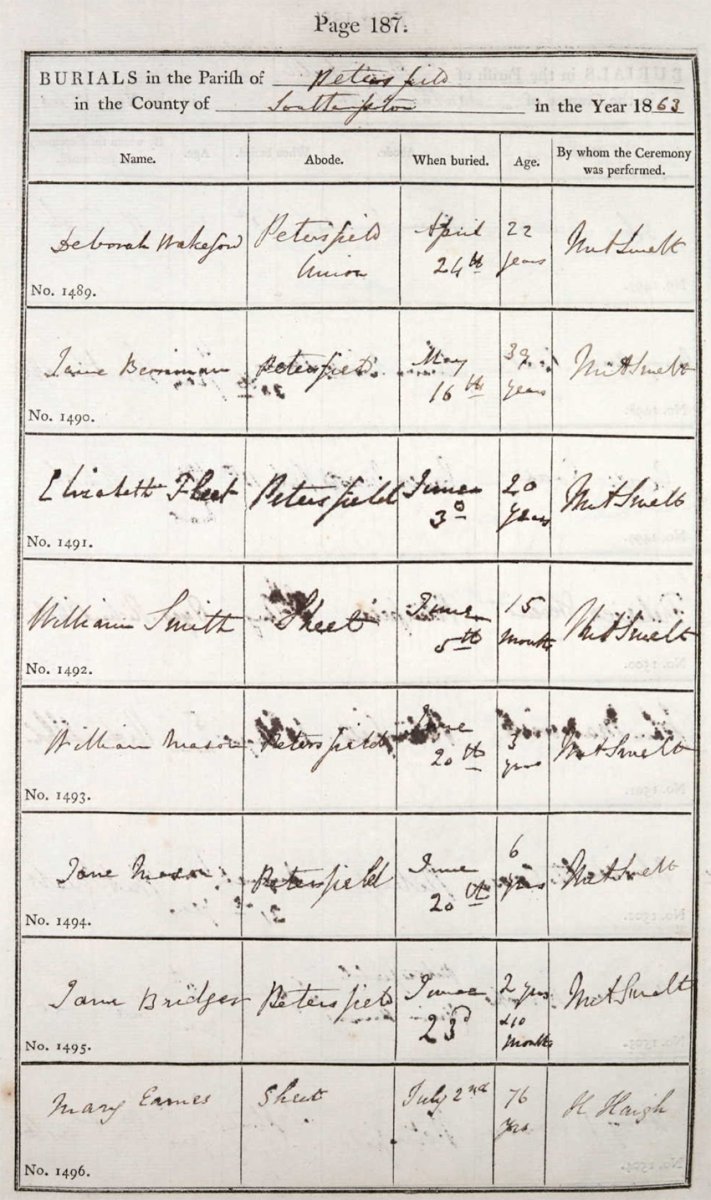 Page 187.
BURIALS in the Parish of Petersfield
in the County of Southampton in the Year 1863
Name. Abode. When buried. Age. By whom the Ceremony was performed.
Deborah Wakeford Petersfield Union April 24th 22 years
No. 1489.
Jane Berriman Petersfield May 16th 39 years
No. 1490.
Elizabeth Fleet Petersfield June 3d 20 years
No. 1491.
William Smith Sheet June 5th 15 months
No. 1492.
William Mason Petersfield June 20th 3 years
No. 1493.
Jane Mason Petersfield June 20th 6 yrs
No. 1494.
Jane Bridger Petersfield June 23d 2 yrs &10 months
No. 1495.
Mary Eames Sheet July 2nd 76 yrs H Haigh
No. 1496.